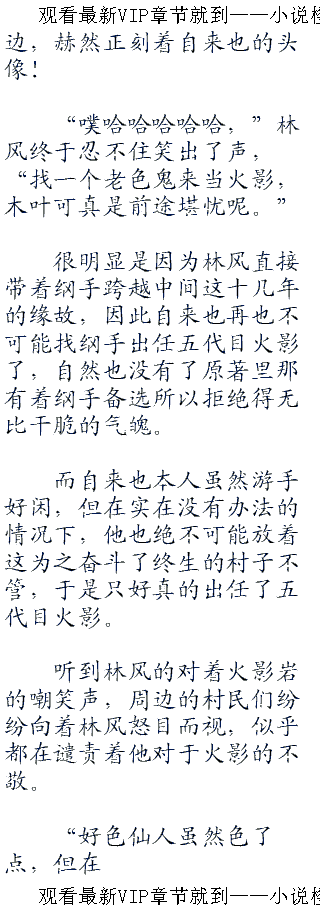 观看最新VIP章节就到——小说检
边，赫然正刻着自来也的头
像！
“噗哈哈哈哈哈，”林
风终于忍不住笑出了声，
“找一个老色鬼来当火影，
木叶可真是前途堪忧呢。”
很明显是因为林风直接
带着纲手跨越中间这十几年
的缘故，因此自来也再也不
可能找纲手出任五代目火影
了，自然也没有了原著里那
有着纲手备选所以拒绝得无
比干脆的气魄。
而自来也本人虽然游手
好闲，但在实在没有办法的
情况下，他也绝不可能放着
这为之奋斗了终生的村子不
管，于是只好真的出任了五
代目火影。
听到林风的对着火影岩
的嘲笑声，周边的村民们纷
纷向着林风怒目而视，似乎
都在谴责着他对于火影的不
敬。
“好色仙人虽然色了
点，但在
观看最新VIP章节就到——小说检